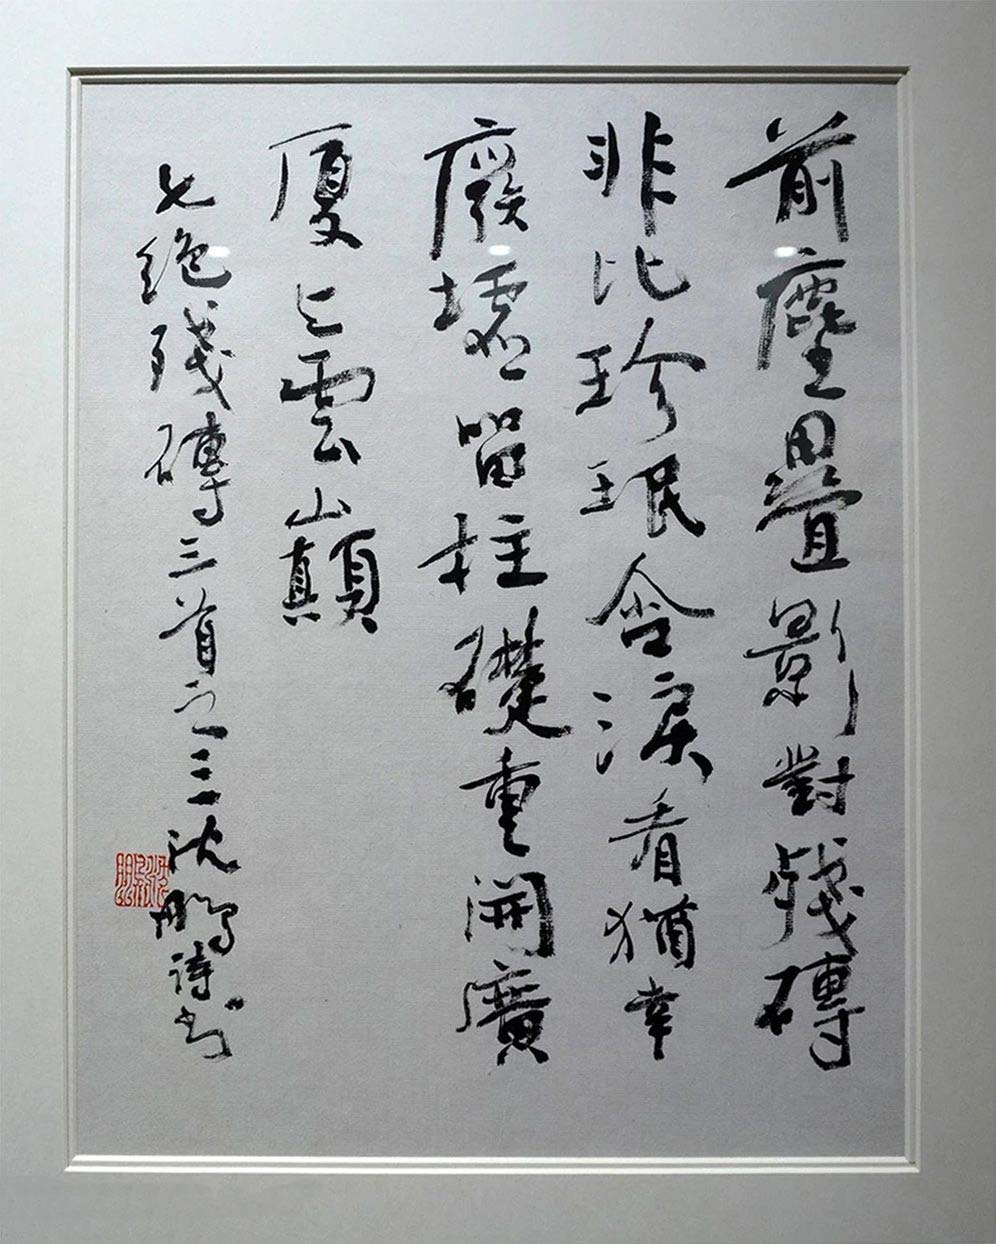 前塵疊影對殘磚
非比珍珉含淚看猶幸
廢墟留柱礎重開廣
厦上雲巔
七絕殘磚三首之三沈鵬詩書
沈鵬